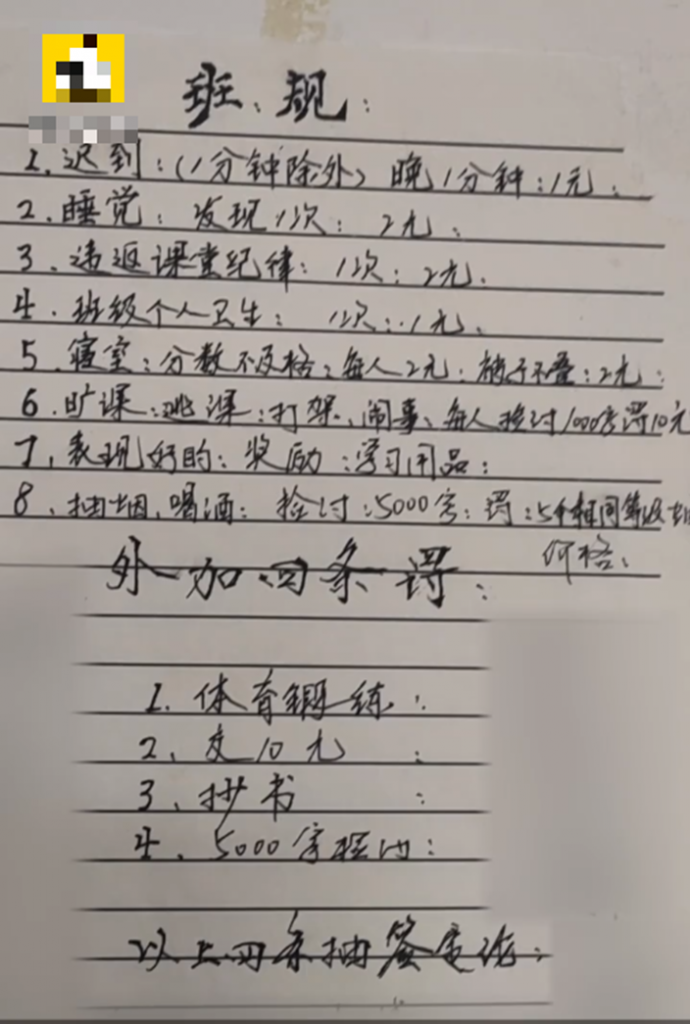 班、规:
1.迟到:(1分钟除外)晚1分钟:1元.
2.睡觉:发现1次:2元.
3.违返课堂纪律:1次:2元.
4.班级个人卫生:1次:1元.
5.寝室:分数不及格:每人2元:被子不叠:2元:
6.旷课:逃课:打架、闹事、每人检讨1000字罚10元
7.表现好的:奖励:学习用品:
8.抽烟、喝酒:检讨:5000字:罚:5个相同等级
价格:
外加四条罚:
1.体育锻练:
2、交10元:
3、抄书:
4、5000字检讨:
以上四条抽签定论: